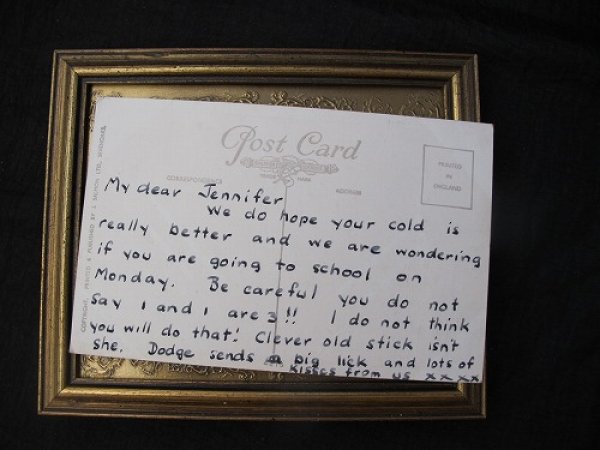 Post Card
TRADE MARK
CORRESPONDENCE
ADDRESS
PRINTED
IN
ENGLAND
COPYRIGHT. PRINTED & PUBLISHED BY J. SALMON LTD., SEVENOAKS
My dear Jennifer
We do hope your cold is
really better and we are wondering
if you are going to school on
Monday. Be careful you do not
say 1 and 1 are 3!! I do not think
you will do that! Clever old stick isn't
she. Dodge sends a big lick and lots of
kisses from us x x x x